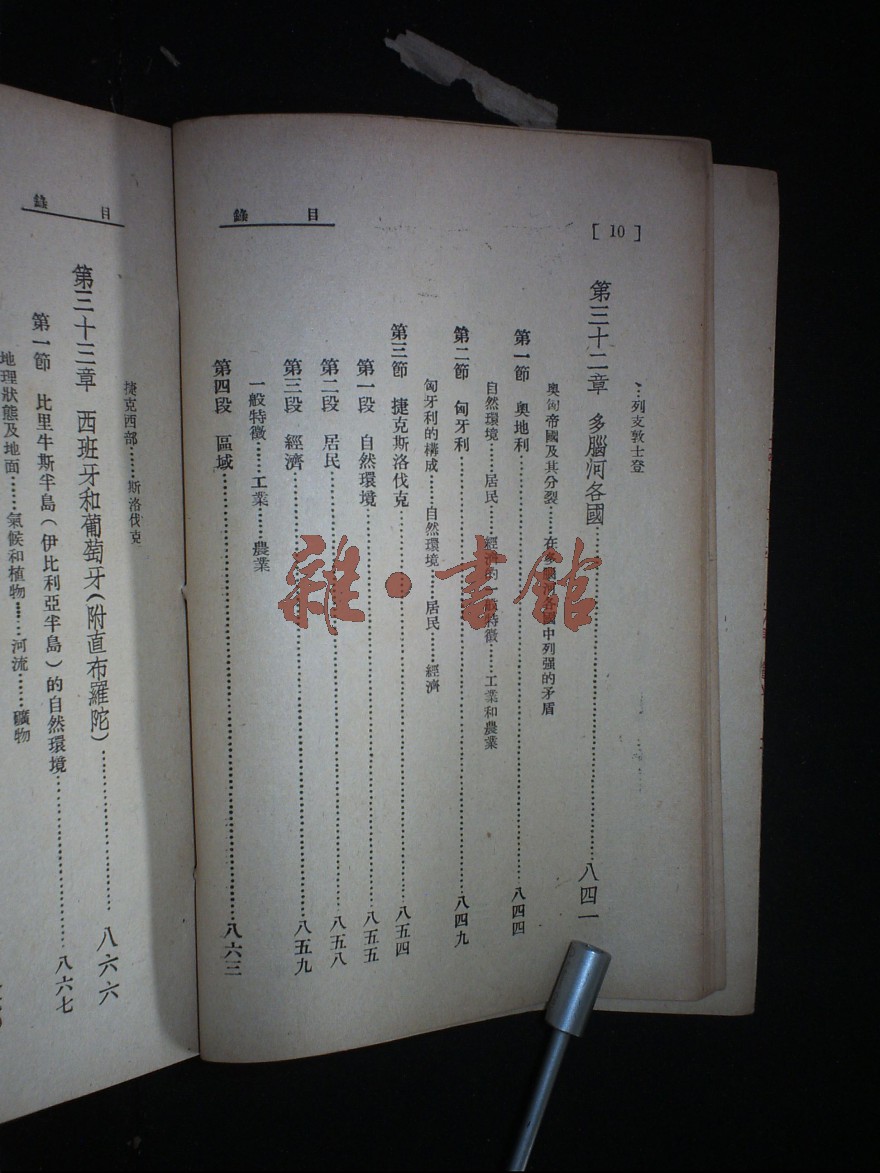 [10]
目錄
…列支敦士登
第三十二章 多腦河各國……八四一
奧匈帝國及其分裂……在多腦河各國中列强的矛盾
第一節 奧地利……八四四
自然環境……居民……經濟的一般特徵……工業和農業
第二節 匈牙利……八四九
匈牙利的構成……自然環境……居民……經濟
第三節 捷克斯洛伐克……八五四
第一段 自然環境……八五五
第二段 居民……八五八
第三段 經濟……八五九
一般特徵……工業……農業
第四段 區域……八六三
目錄
捷克西部……斯洛伐克
第三十三章 西班牙和葡萄牙(附直布羅陀)……八六六
第一節 比里牛斯半島(伊比利亞半島)的自然環境……八六七
地理狀態及地面……氣候和植物……河流……礦物
雜·書館